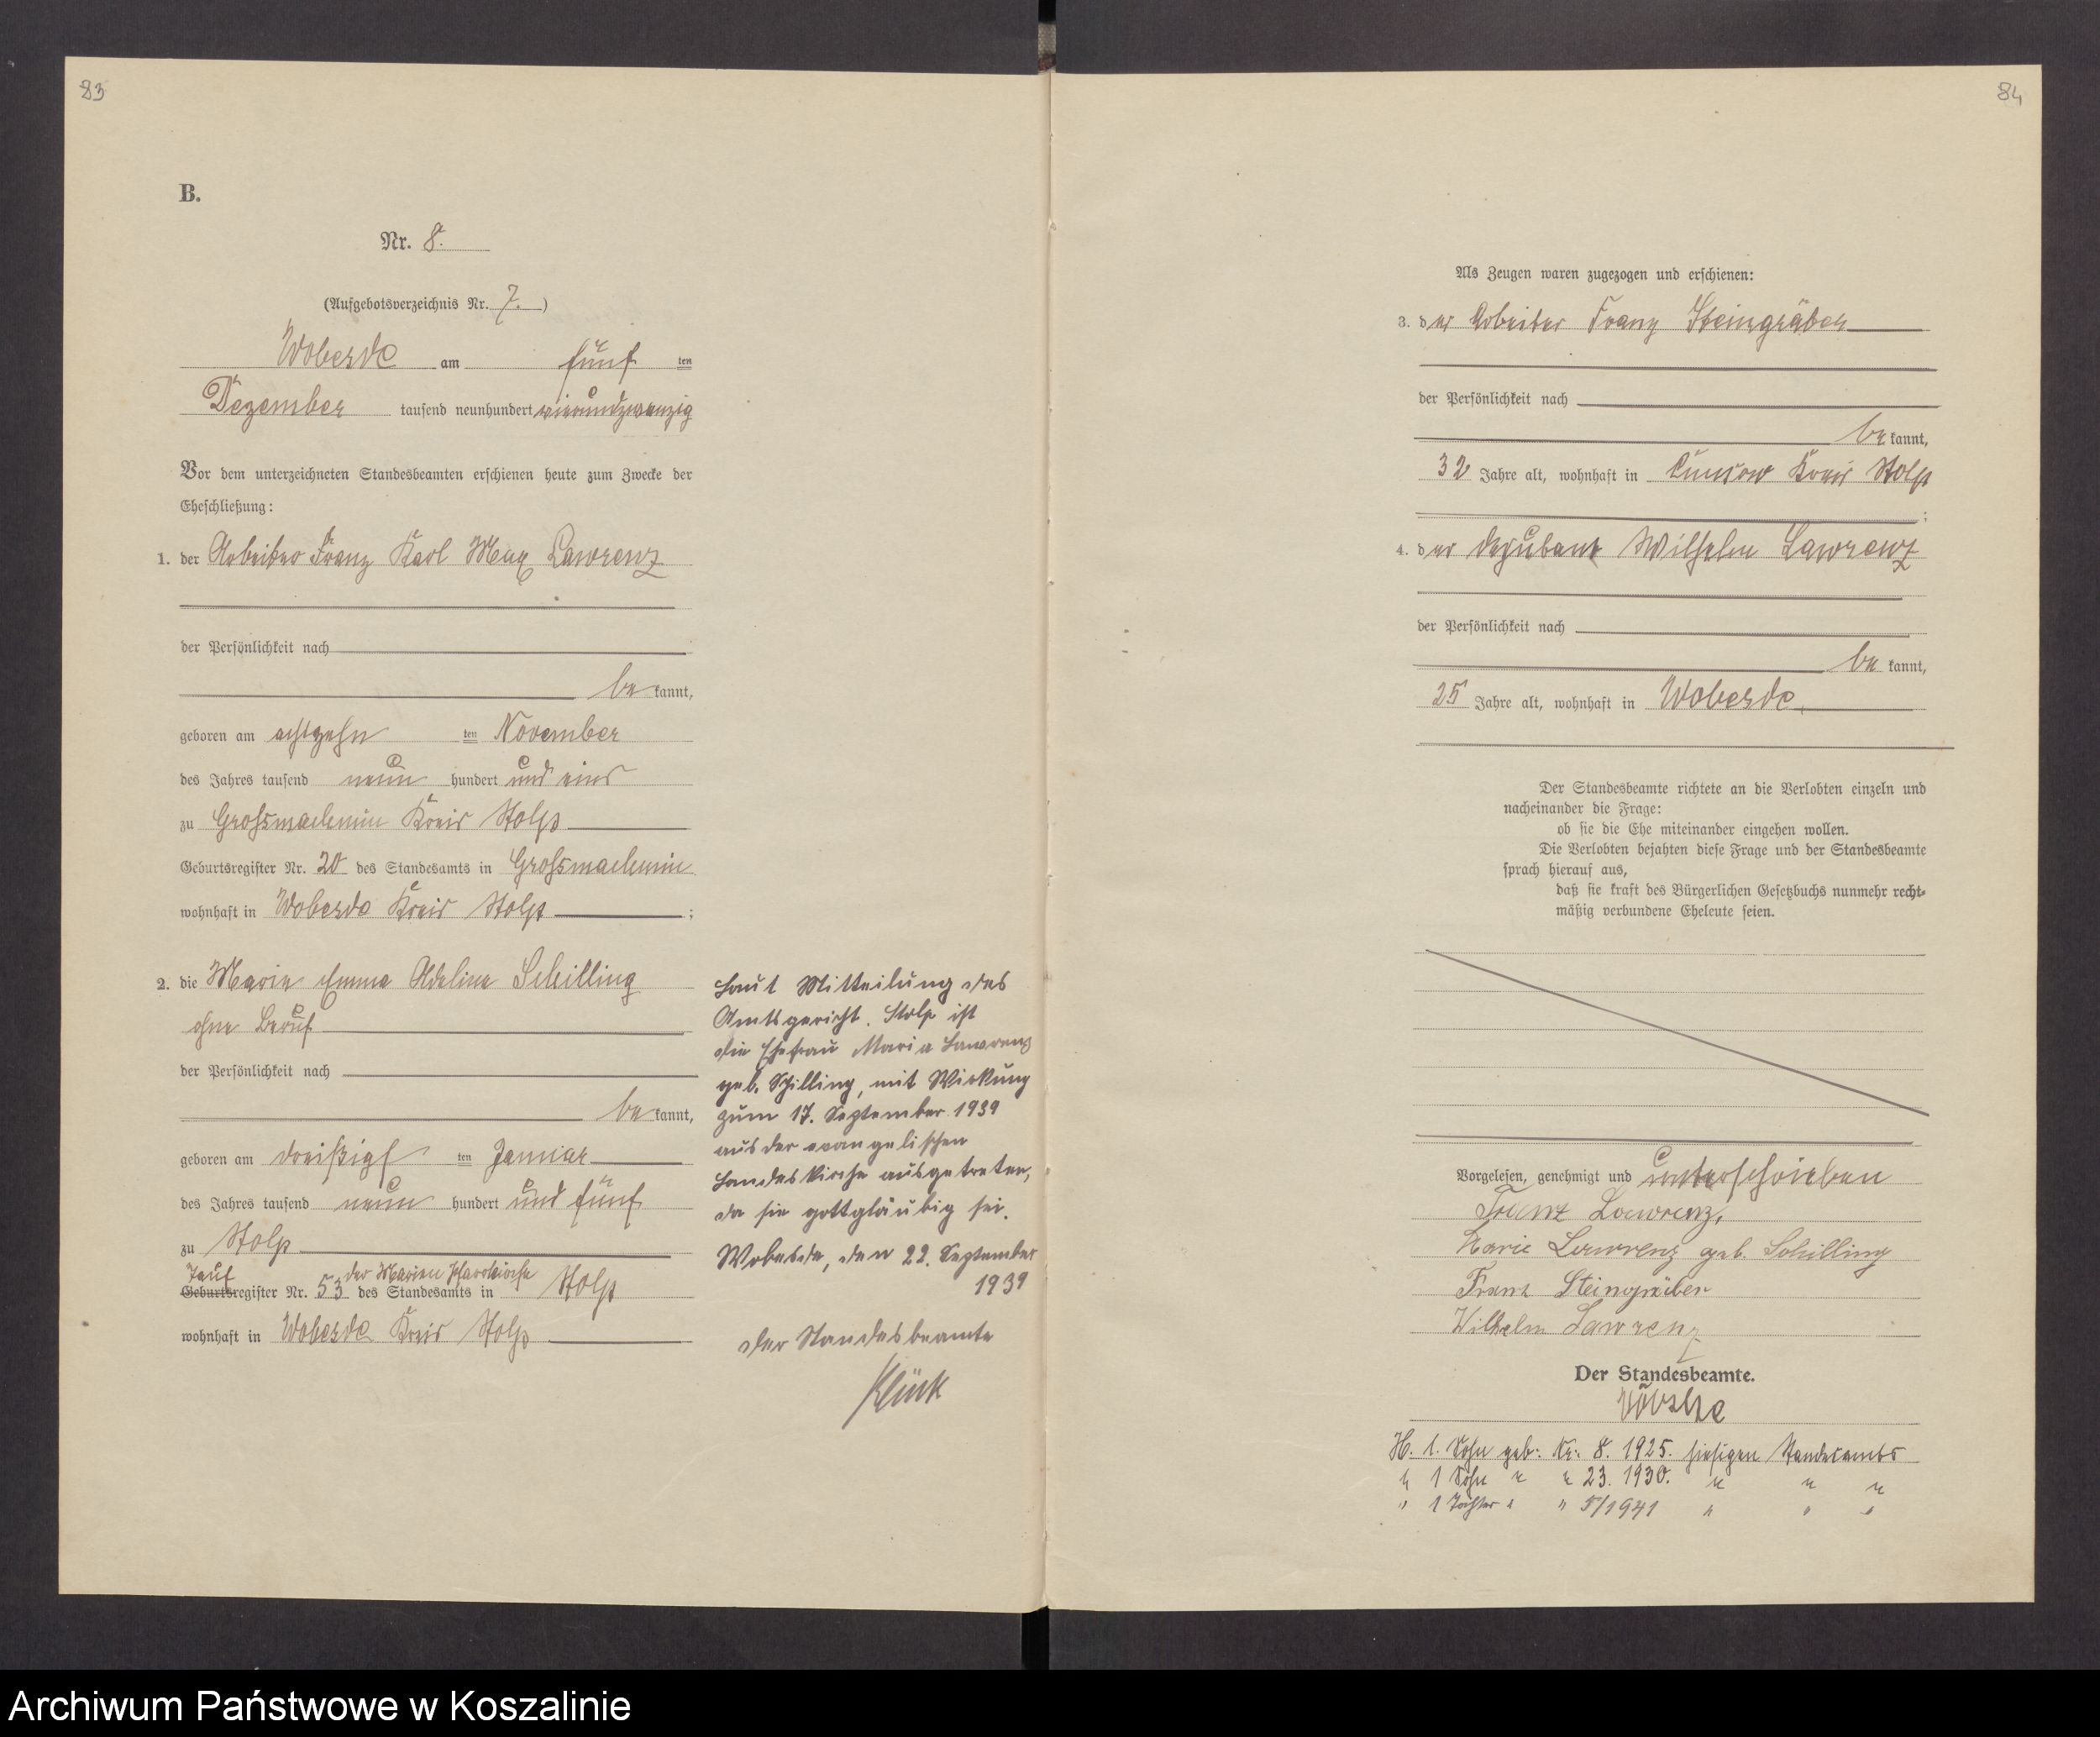 83
B.
Nr. 8.
(Aufgebotsverzeichnis Nr. 7.)
Wobesde am fünf ten
Dezember tausend neunhundert vierundzwanzig
Vor dem unterzeichneten Standesbeamten erschienen heute zum Zwecke der
Eheschließung:
1. der Arbeiter Franz Karl Max Lawrenz
der Persönlichkeit nach
be kannt,
geboren am achtzehn ten November
des Jahres tausend neun hundert und eins
zu Grossmachmin Kreis Stolp
Geburtsregister Nr. 20 des Standesamts in Grossmachmin
wohnhaft in Wobesde Kreis Stolp ;
2. die Marie Emma Adeline Schilling
ohne Beruf
der Persönlichkeit nach
be kannt,
geboren am dreißigst ten Januar
des Jahres tausend neun hundert und fünf
zu Stolp
Tauf der Marien Pfarrkirche
Geburtsregister Nr. 53 des Standesamts in Stolp
wohnhaft in Wobesde Kreis Stolp
Laut Mitteilung des
Amtsgericht. Stolp ist
die Ehefrau Maria Lawrenz
geb. Schilling, mit Wirkung
zum 17. September 1939
aus der evangelischen
Landeskirche ausgetreten,
da sie gottgläubig sei.
Wobesde, den 22. September
1939
Der Standesbeamte
Klück
84
Als Zeugen waren zugezogen und erschienen:
3. der Arbeiter Franz Steingräber
der Persönlichkeit nach
be kannt,
32 Jahre alt, wohnhaft in Kreis Stolp
;
4. der Deputant Wilhelm Lawrenz
der Persönlichkeit nach
be kannt,
25 Jahre alt, wohnhaft in Wobesde.
Der Standesbeamte richtete an die Verlobten einzeln und
nacheinander die Frage:
ob sie die Ehe miteinander eingehen wollen.
Die Verlobten bejahten diese Frage und der Standesbeamte
sprach hierauf aus,
daß sie kraft des Bürgerlichen Gesetzbuchs nunmehr recht-
mäßig verbundene Eheleute seien.
Vorgelesen, genehmigt und unterschrieben
Franz Lawrenz,
Marie Lawrenz geb. Schilling
Franz Steingräber
Wilhelm Lawrenz
Der Standesbeamte.
H. 1. Sohn geb: Nr: 8. 1925. hiesigen Standesamts
" 1 Sohn " " 23. 1930. " " "
" 1 Tochter " " 5/1941 " " "
Archiwum Państwowe w Koszalinie